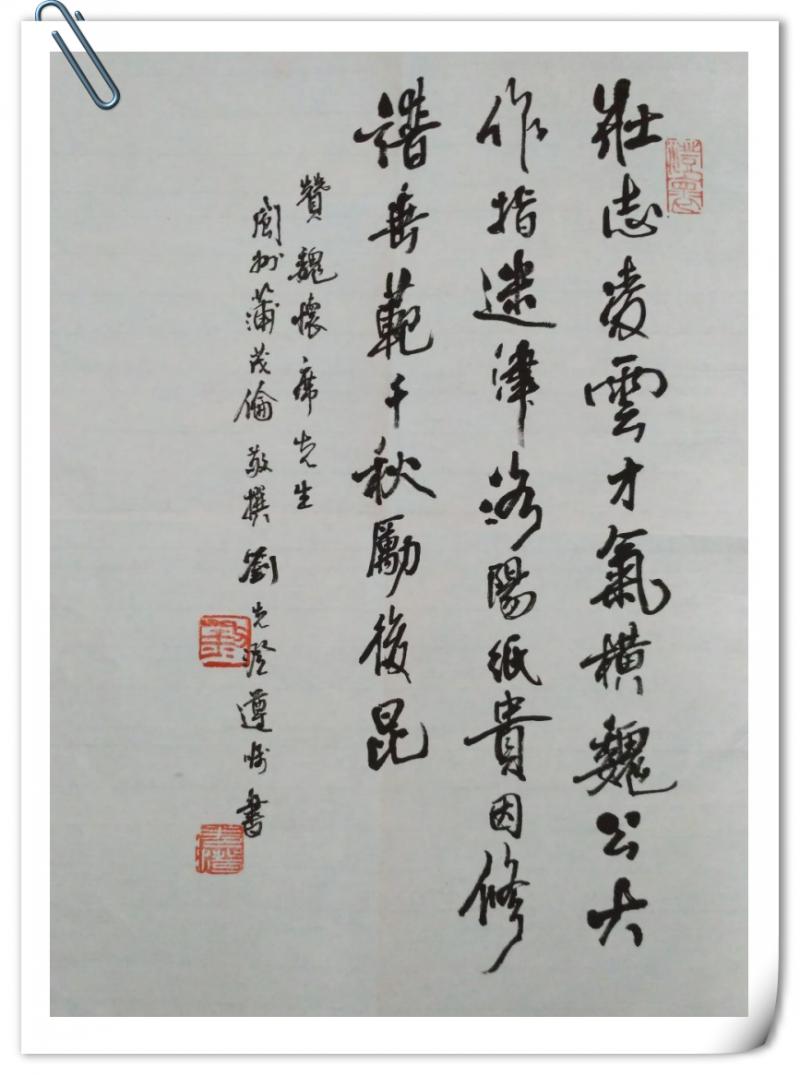 壯志凌雲才氣橫魏公大
作指迷津洛陽紙貴因修
譜垂範千秋勵後昆
贊魏懷席先生
閬州蒲茂倫敬撰劉先澄遵嘱書